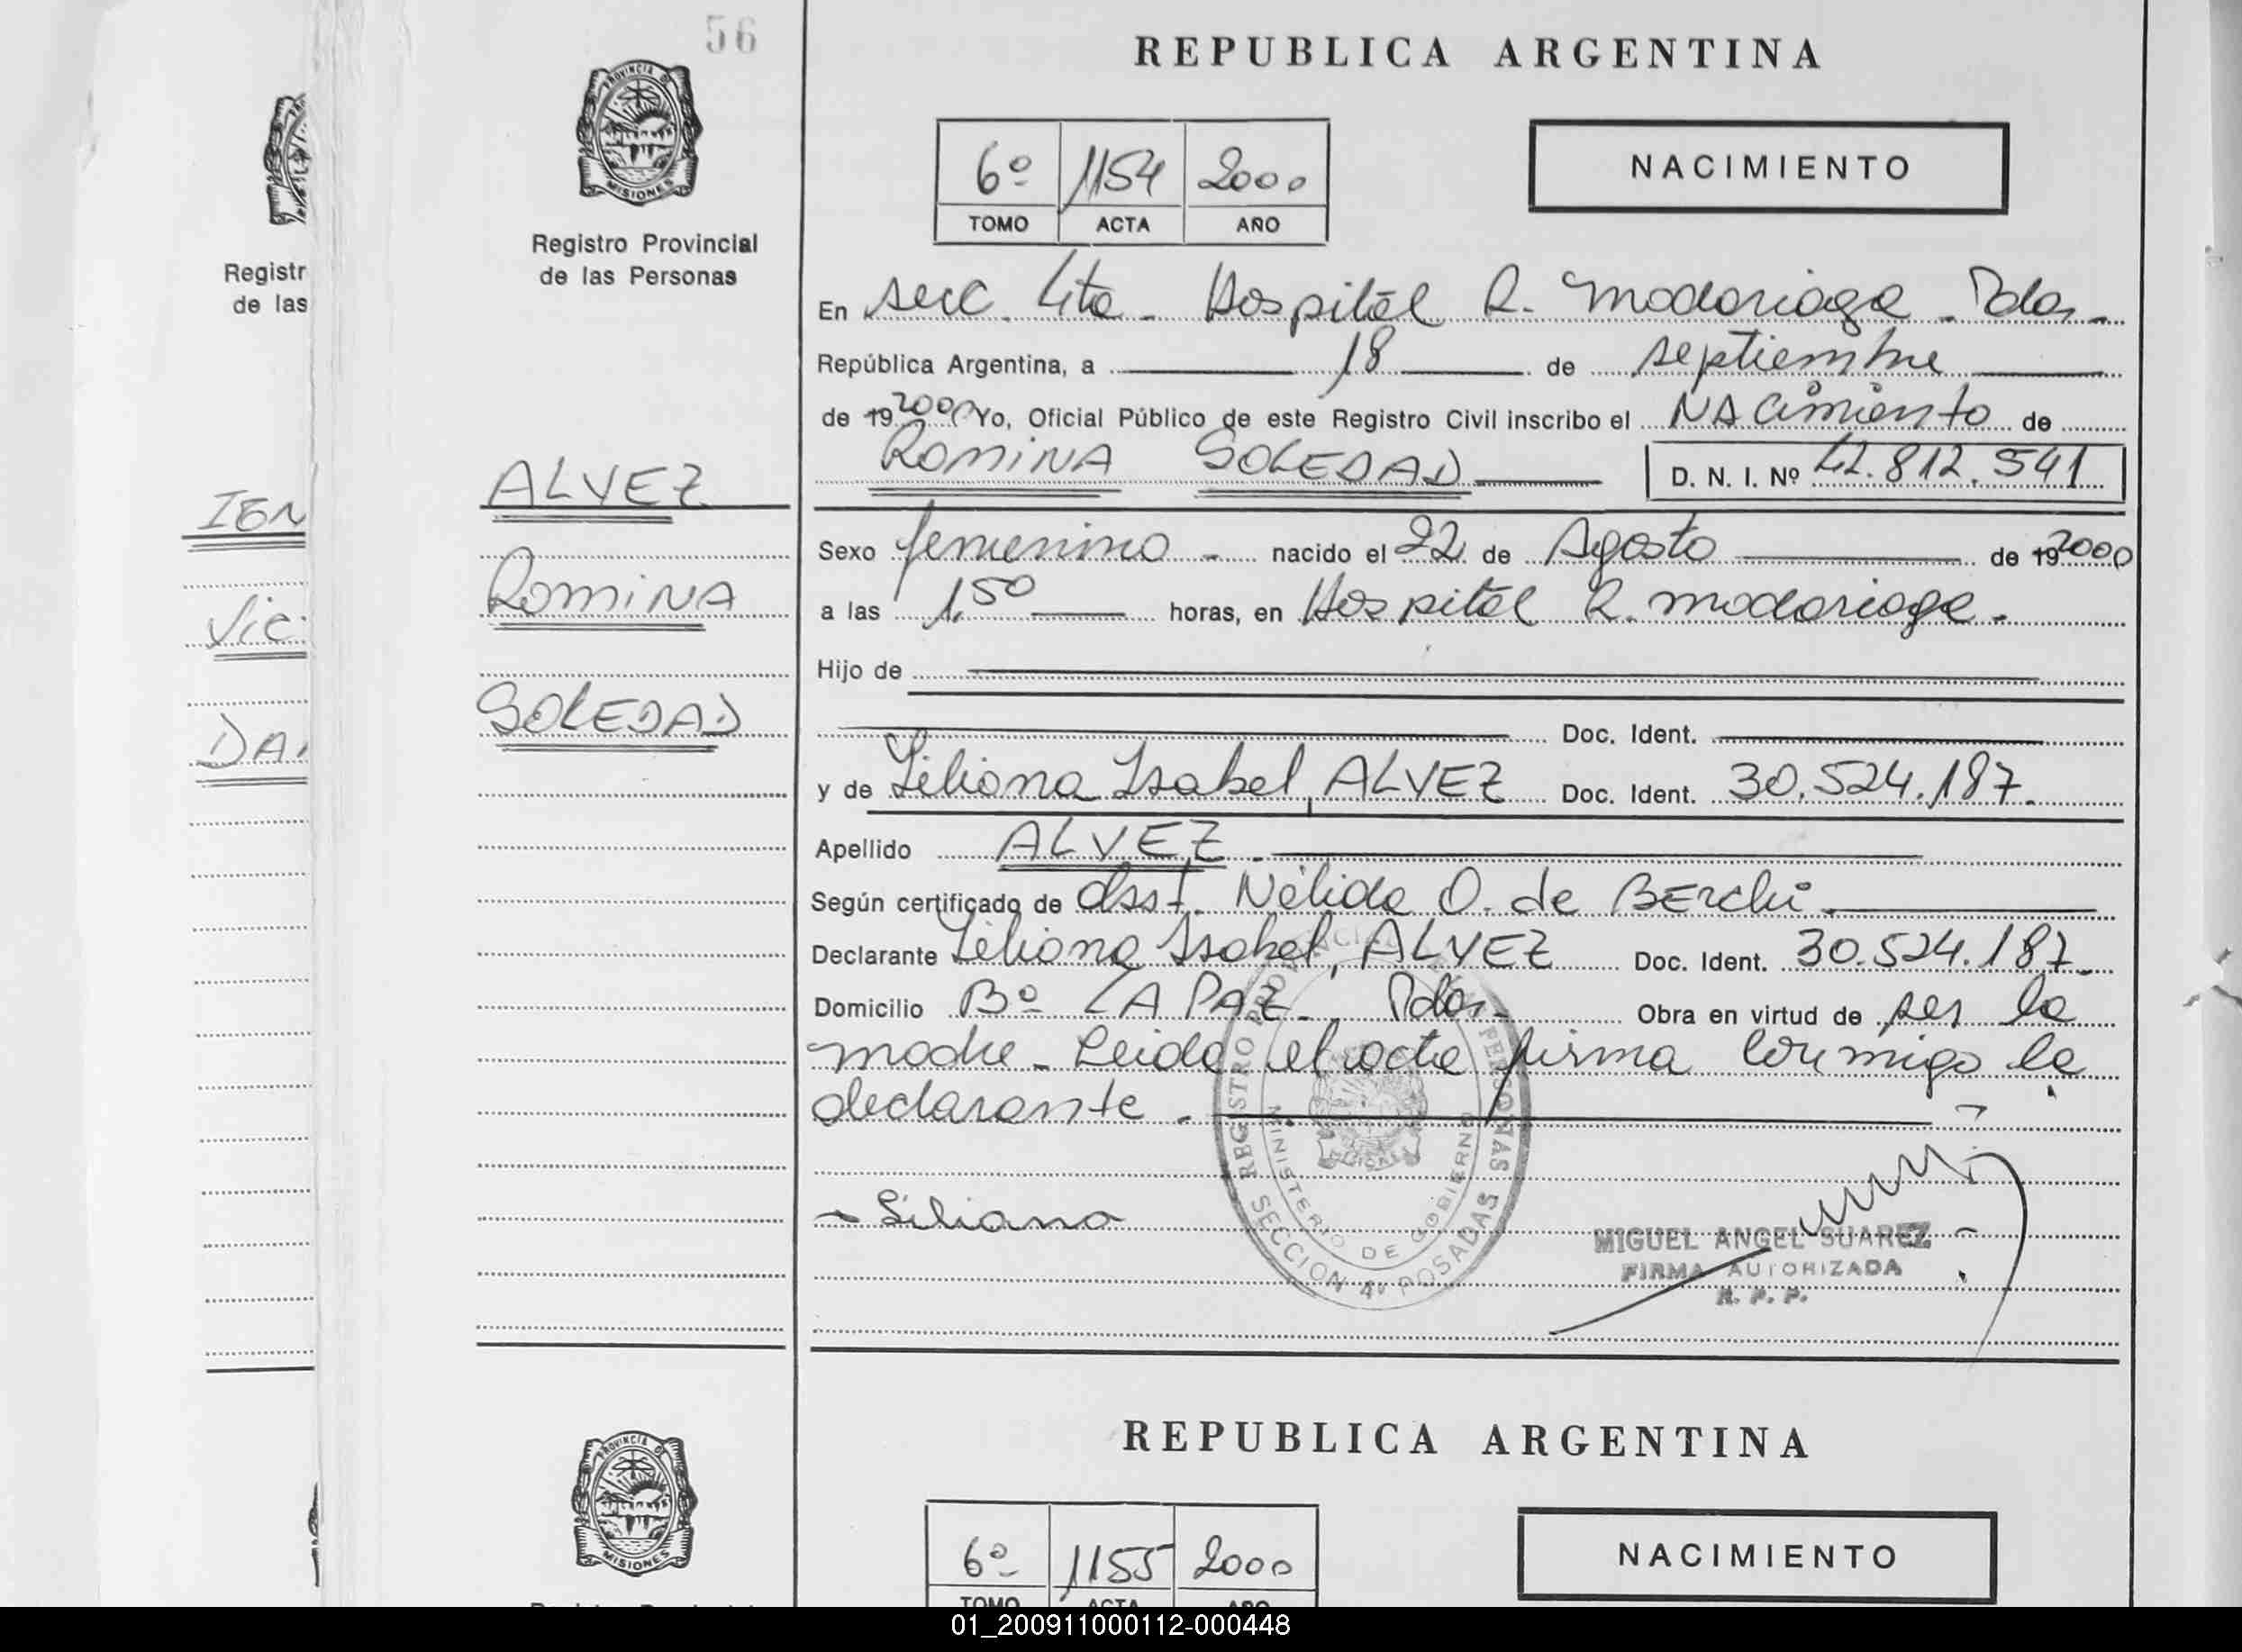 56
REPUBLICA ARGENTINA
PROVINCIA DE
MISIONES
6º 1154 2000
TOMO ACTA AÑO
NACIMIENTO
Registro Provincial
de las Personas
Registr
de las
En secc. 4ta - Hospital R. Madariaga - Pdas -
República Argentina, a 18 de septiembre
de 19 2000 Yo, Oficial Público de este Registro Civil inscribo el NACimiento de
ROMINA SOLEDAD D. N. I. Nº 42.812.541
ALVEZ
IEN
Sexo femenino - nacido el 22 de Agosto de 19 2000
ROMINA
a las 1,50 horas, en Hospital R. Madariaga.
Vic
Hijo de
SOLEDAD
Doc. Ident.
DA
y de Liliana Isabel, ALVEZ Doc. Ident. 30.524.187.
Apellido ALVEZ.
Según certificado de Obst. Nélida O. de BERchi.
Declarante Liliana Isabel, ALVEZ Doc. Ident. 30.524.187.
Domicilio Bº LA PAZ - Pdas - Obra en virtud de ser la
madre - Leida el acta firma conmigo la
declarante.
REGISTRO PROVINCIAL DE LAS PERSONAS
MINISTERIO DE GOBIERNO
SECCION 4ª POSADAS
- Liliana
MIGUEL ANGEL SUAREZ
FIRMA AUTORIZADA
R. P. P.
REPUBLICA ARGENTINA
PROVINCIA DE
MISIONES
6º 1155 2000
TOMO ACTA AÑO
NACIMIENTO
01_200911000112-000448